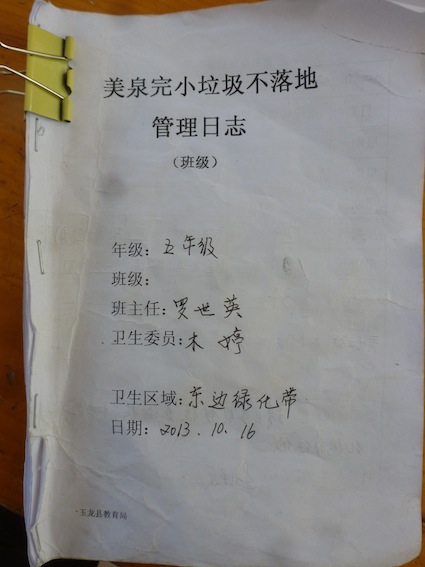 美泉完小垃圾不落地
管理日志
（班级）
年级：五年级
班级：
班主任：罗世英
卫生委员：木婷
卫生区域：东边绿化带
日期：2013.10.16
·玉龙县教育局